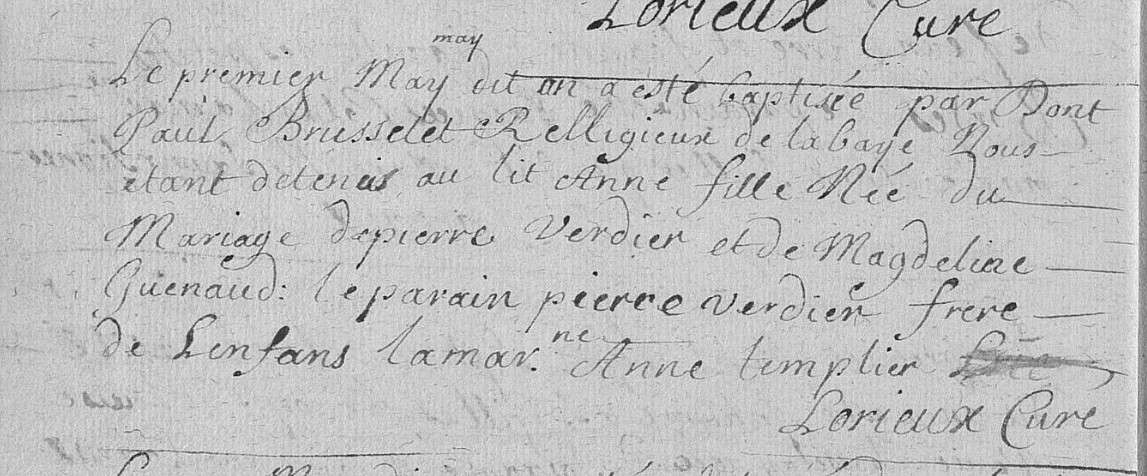 Lorieux Cure
may
Le premier May dit an a esté baptisée par Dont
Paul Brusselet Relligieux de labaye Nous
étant detenus au lit Anne fille Née du
Mariage depierre Verdier et de Magdeline
Guenaud: le parain pierre verdier frere
de Lenfans lamar.ne Anne templier
Lorieux Cure